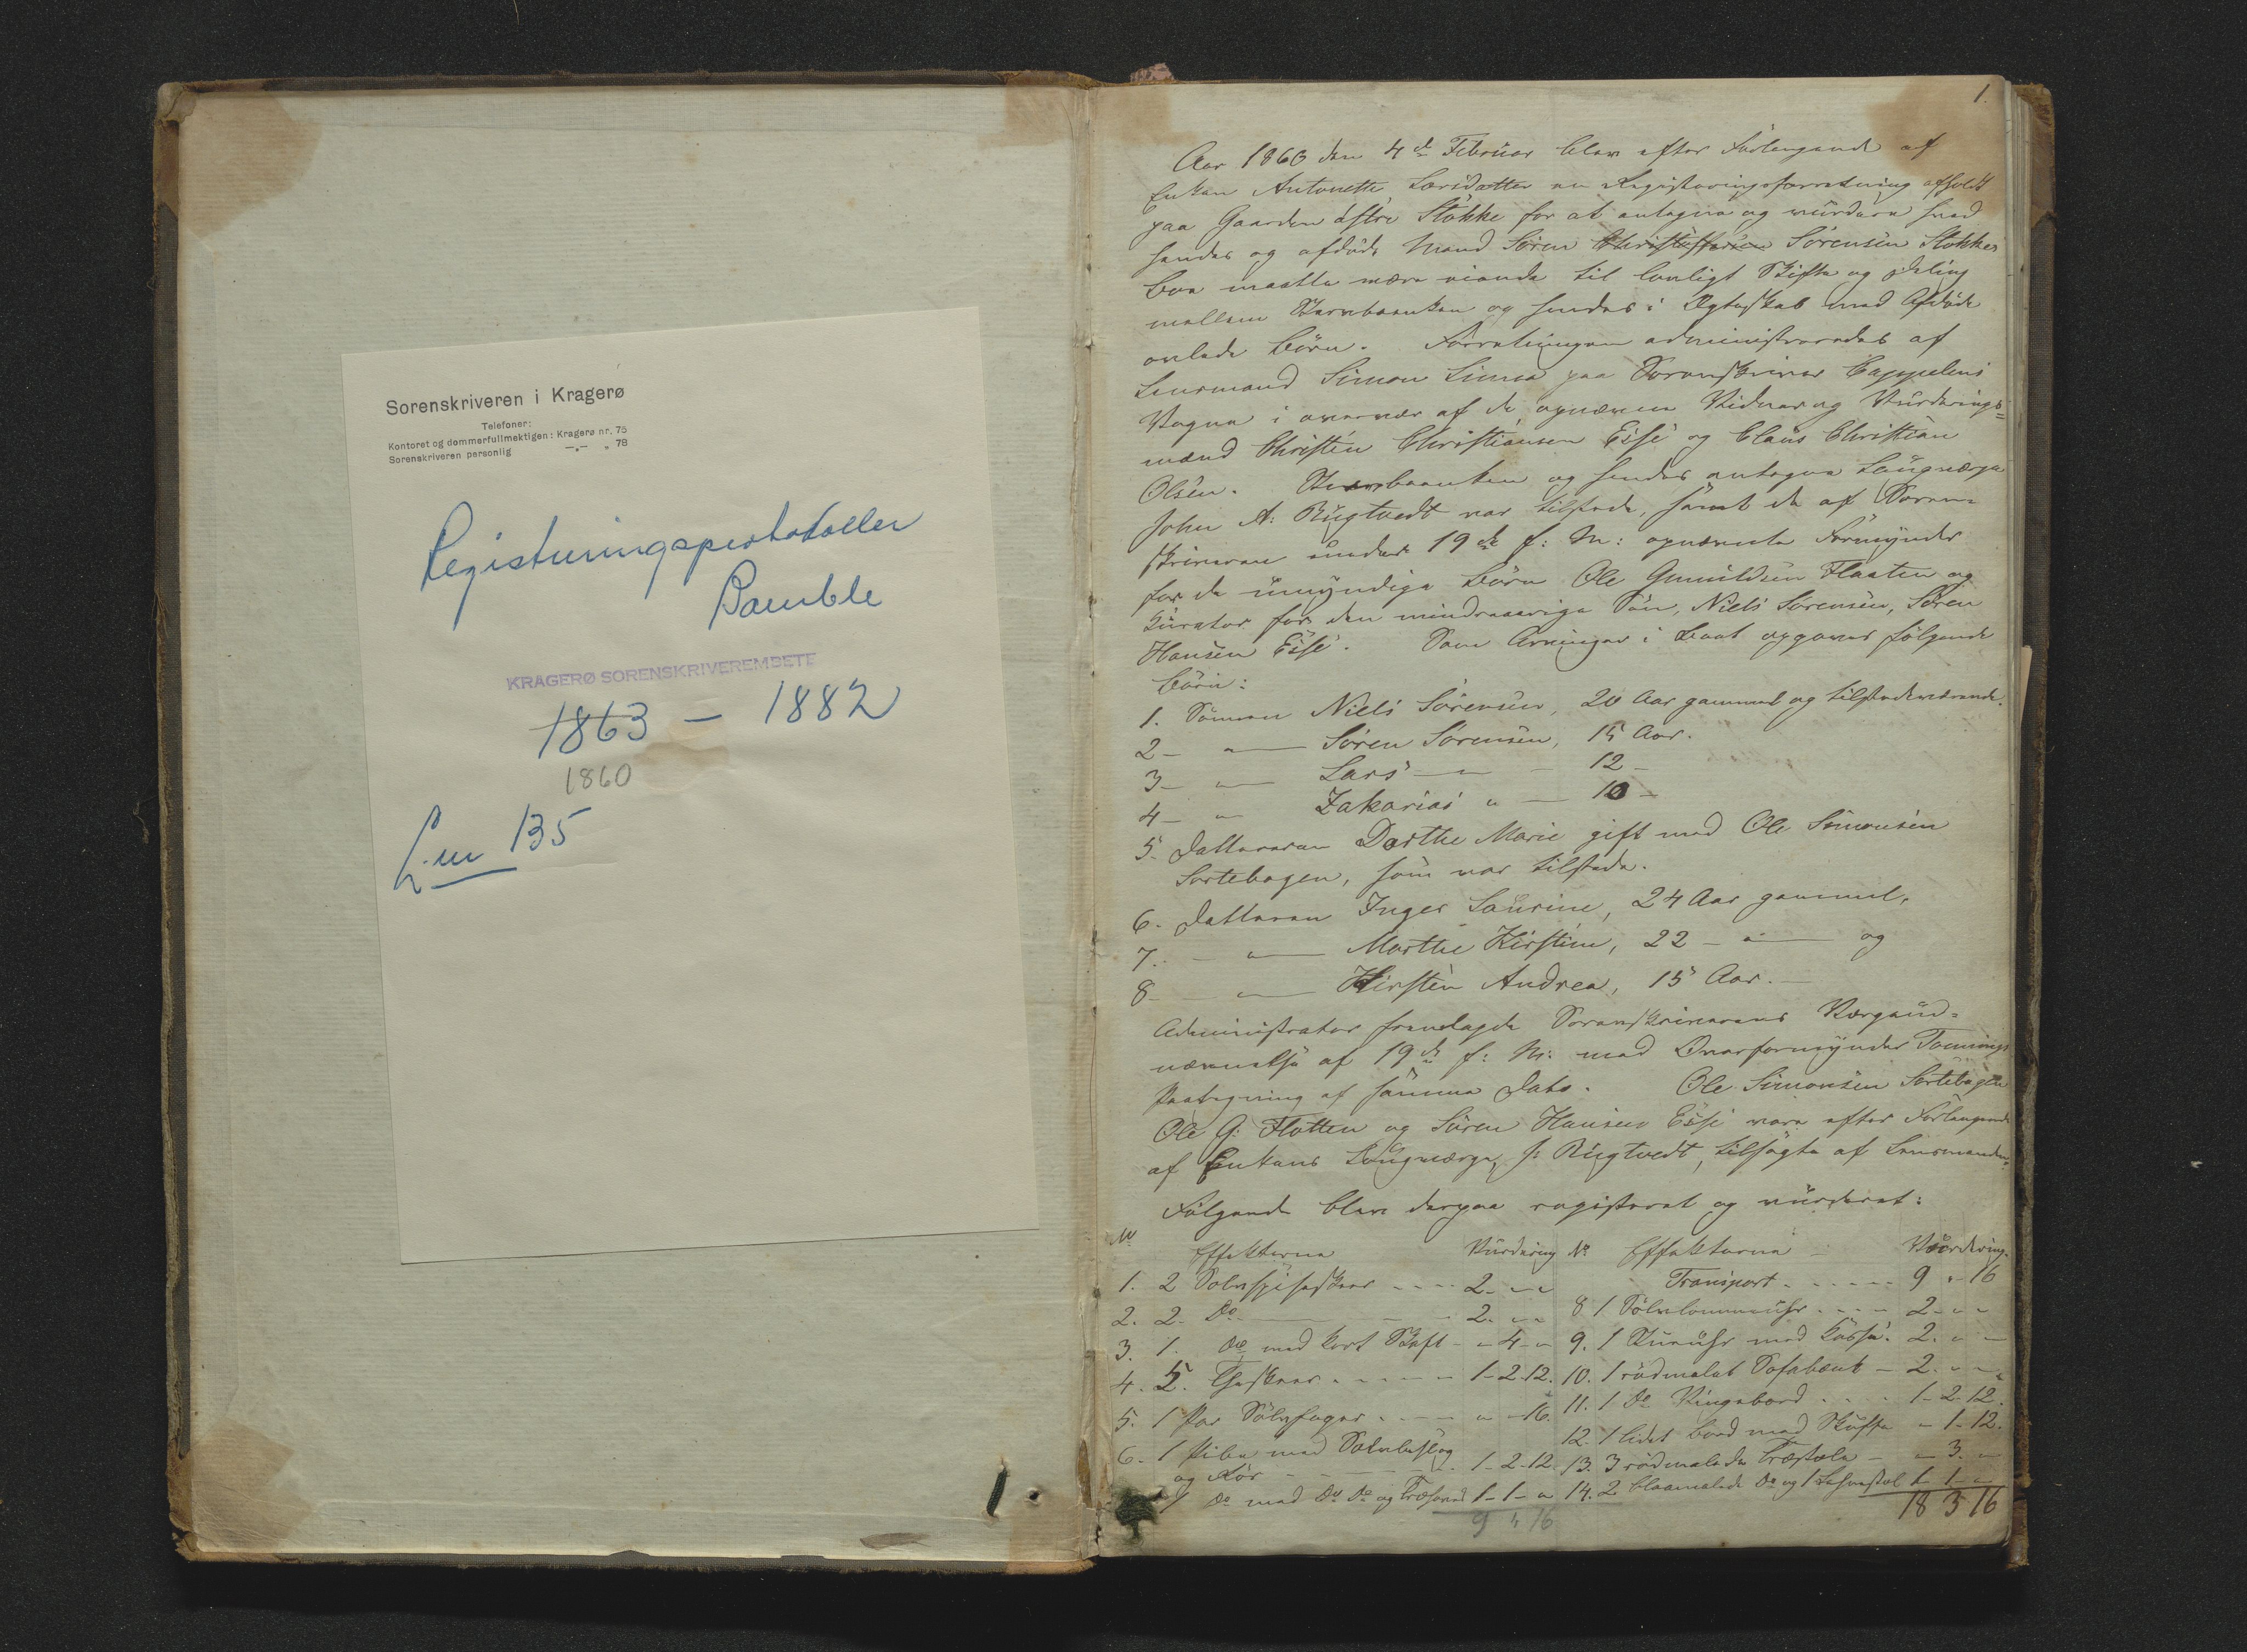 Sorenskriveren i Kragerø
Telefoner:
Kontoret og dommerfullmektigen: Kragerø nr. 75
Sorenskriveren personlig —„— „ 78
Registreringsprotokoller
Bamble
KRAGERØ SORENSKRIVEREMBETE
1863 — 1882
1860
L.nr 135
1.
Aar 1860 den 4de Februar blev efter Forlangende af
Enken Antonette Larsdatter en Registreringsforretning afholdt
paa Gaarden østre Stokke for at antegne og vurdere hvad
hendes og afdøde Mand Søren Christoffersen Sørensen Stokkes
Boe maatte være eiende til lovligt Skifte og Deling
mellem Stervboenken og hendes i Ægteskab med Afdøde
avlede Børn. Forretningen administreredes af
Lensmand Simon Simon paa Sorenskriver Cappelens
Vegne i overvær af de opnævnte Vidner og Vurderings=
mænd Christen Christiansen Eise og Claus Christian
Olsen. Stervboenken og hendes antagne Laugværge
John A: Rugtvedt var tilstede, samt de af Soren=
skriveren under 19de f: M: opnævnte Formynder
for de umyndige Børn Ole Gunuldsen Flaaten og
Kurator for den mindreaarige Søn, Niels Sørensen, Søren
Hansen Eise. Som Arvinger i Boet opgaves følgende
Børn:
1. Sønnen Niels Sørensen, 20 Aar gammel og tilstedeværende.
2 - " — Søren Sørensen, 15 Aar.
3 - " — Lars — " — 12 -
4 - " Zakarias " — 10 -
5. Datteren Dorthe Marie gift med Ole Simonsen
Sortebogen, som var tilstede.
6. Datteren Inger Laurine, 24 Aar gammel,
7. - " — Marthe Kirstine, 22 - " — og
8 - " — Kirsten Andrea, 15 Aar. —
Administrator fremlagde Sorenskriverens Værgeud=
nævnelse af 19de f: M: med Overformynder Tomings
Paategning af samme Dato. Ole Simonsen Sortebogen
Ole G: Flotten og Søren Hansen Eise vare efter Forlangende
af Enkens Laugværge, J: Rugtvedt, tilsagte af Lensmanden.
Følgende blev derpaa registreret og vurderet:
No Effekterne Vurdering No Effekterne - Vurdering.
1. 2 Sølvspiseskeer - - - - 2 - " - "
2. 2. Do — 2. " "
3. 1. Do med kort Skaft - " - 4 - "
4. 5. Theskeer - - - - - 1 - 2 - 12.
5. 1 Par Sølvhager - - - - " - 16.
6. 1 Pibe med Sølvbeslag
og Rør - - - - - - 1 - 2 - 12.
7 Do med Do Do og Træhoved 1 - 1 - "
9 " 16
Transport - - - - - 9 " 16
8 1 Sølvlommeuhr - - - - 2 - " - "
9. 1 Stueuhr med Kasse. 2. " -
10. 1 rødmalet Sofabænk - 2. " - "
11. 1 Do Klingebord - - - 1 - 2 - 12.
12. 1 lidet Bord med Skuffe " - 1 - 12.
13. 3 rødmalede Træstole - " - 3. "
14. 2 blaamalede Do og 1 Lænestol 1 - 1 - "
18 3 16